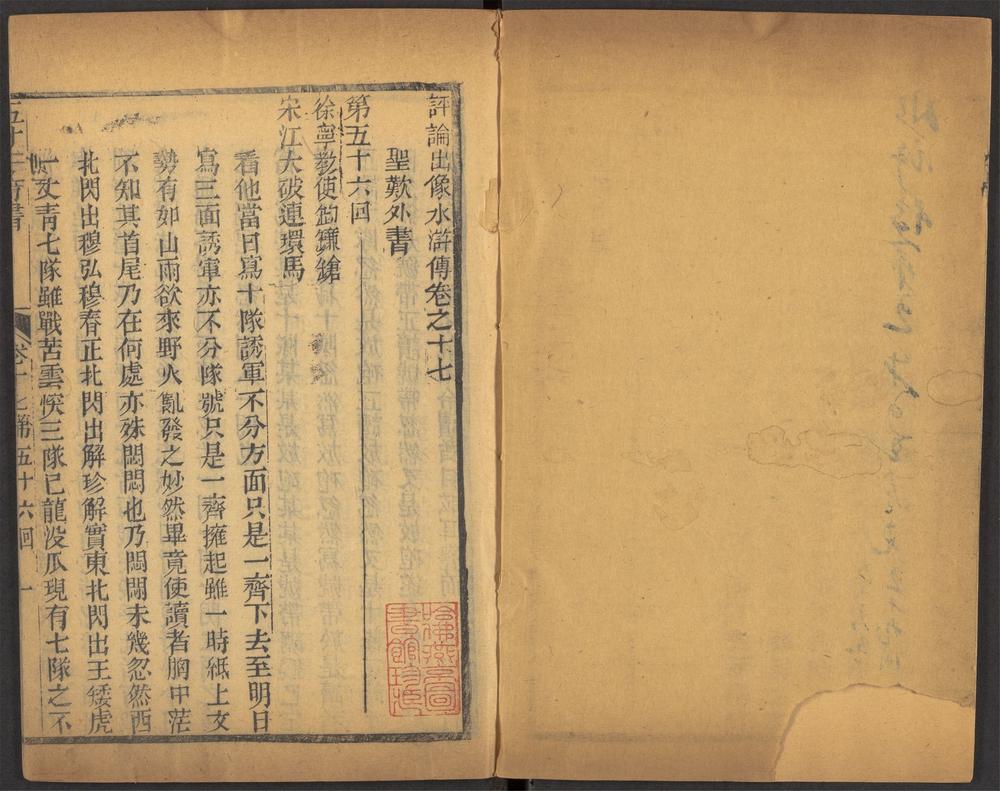 評論出像水滸傳卷之十七
聖歎外書
第五十六回
徐寧教使鈎鐮鎗
宋江大破連環馬
看他當日寫十隊誘軍不分方面只是一齊下去至明日
寫三面誘軍亦不分隊號只是一齊擁起雖一時紙上文
勢有如山雨欲來野火亂發之妙然畢竟使讀者胸中茫
不知其首尾乃在何處亦殊悶悶也乃悶悶未幾忽然西
北閃出穆弘穆春正北閃出解珍解寶東北閃出王矮虎
一丈青七隊雖戰苦雲深三隊已龍沒爪現有七隊之不
五才子奇書 卷十七第五十六回 一
哈佛燕京圖
書館珍藏印